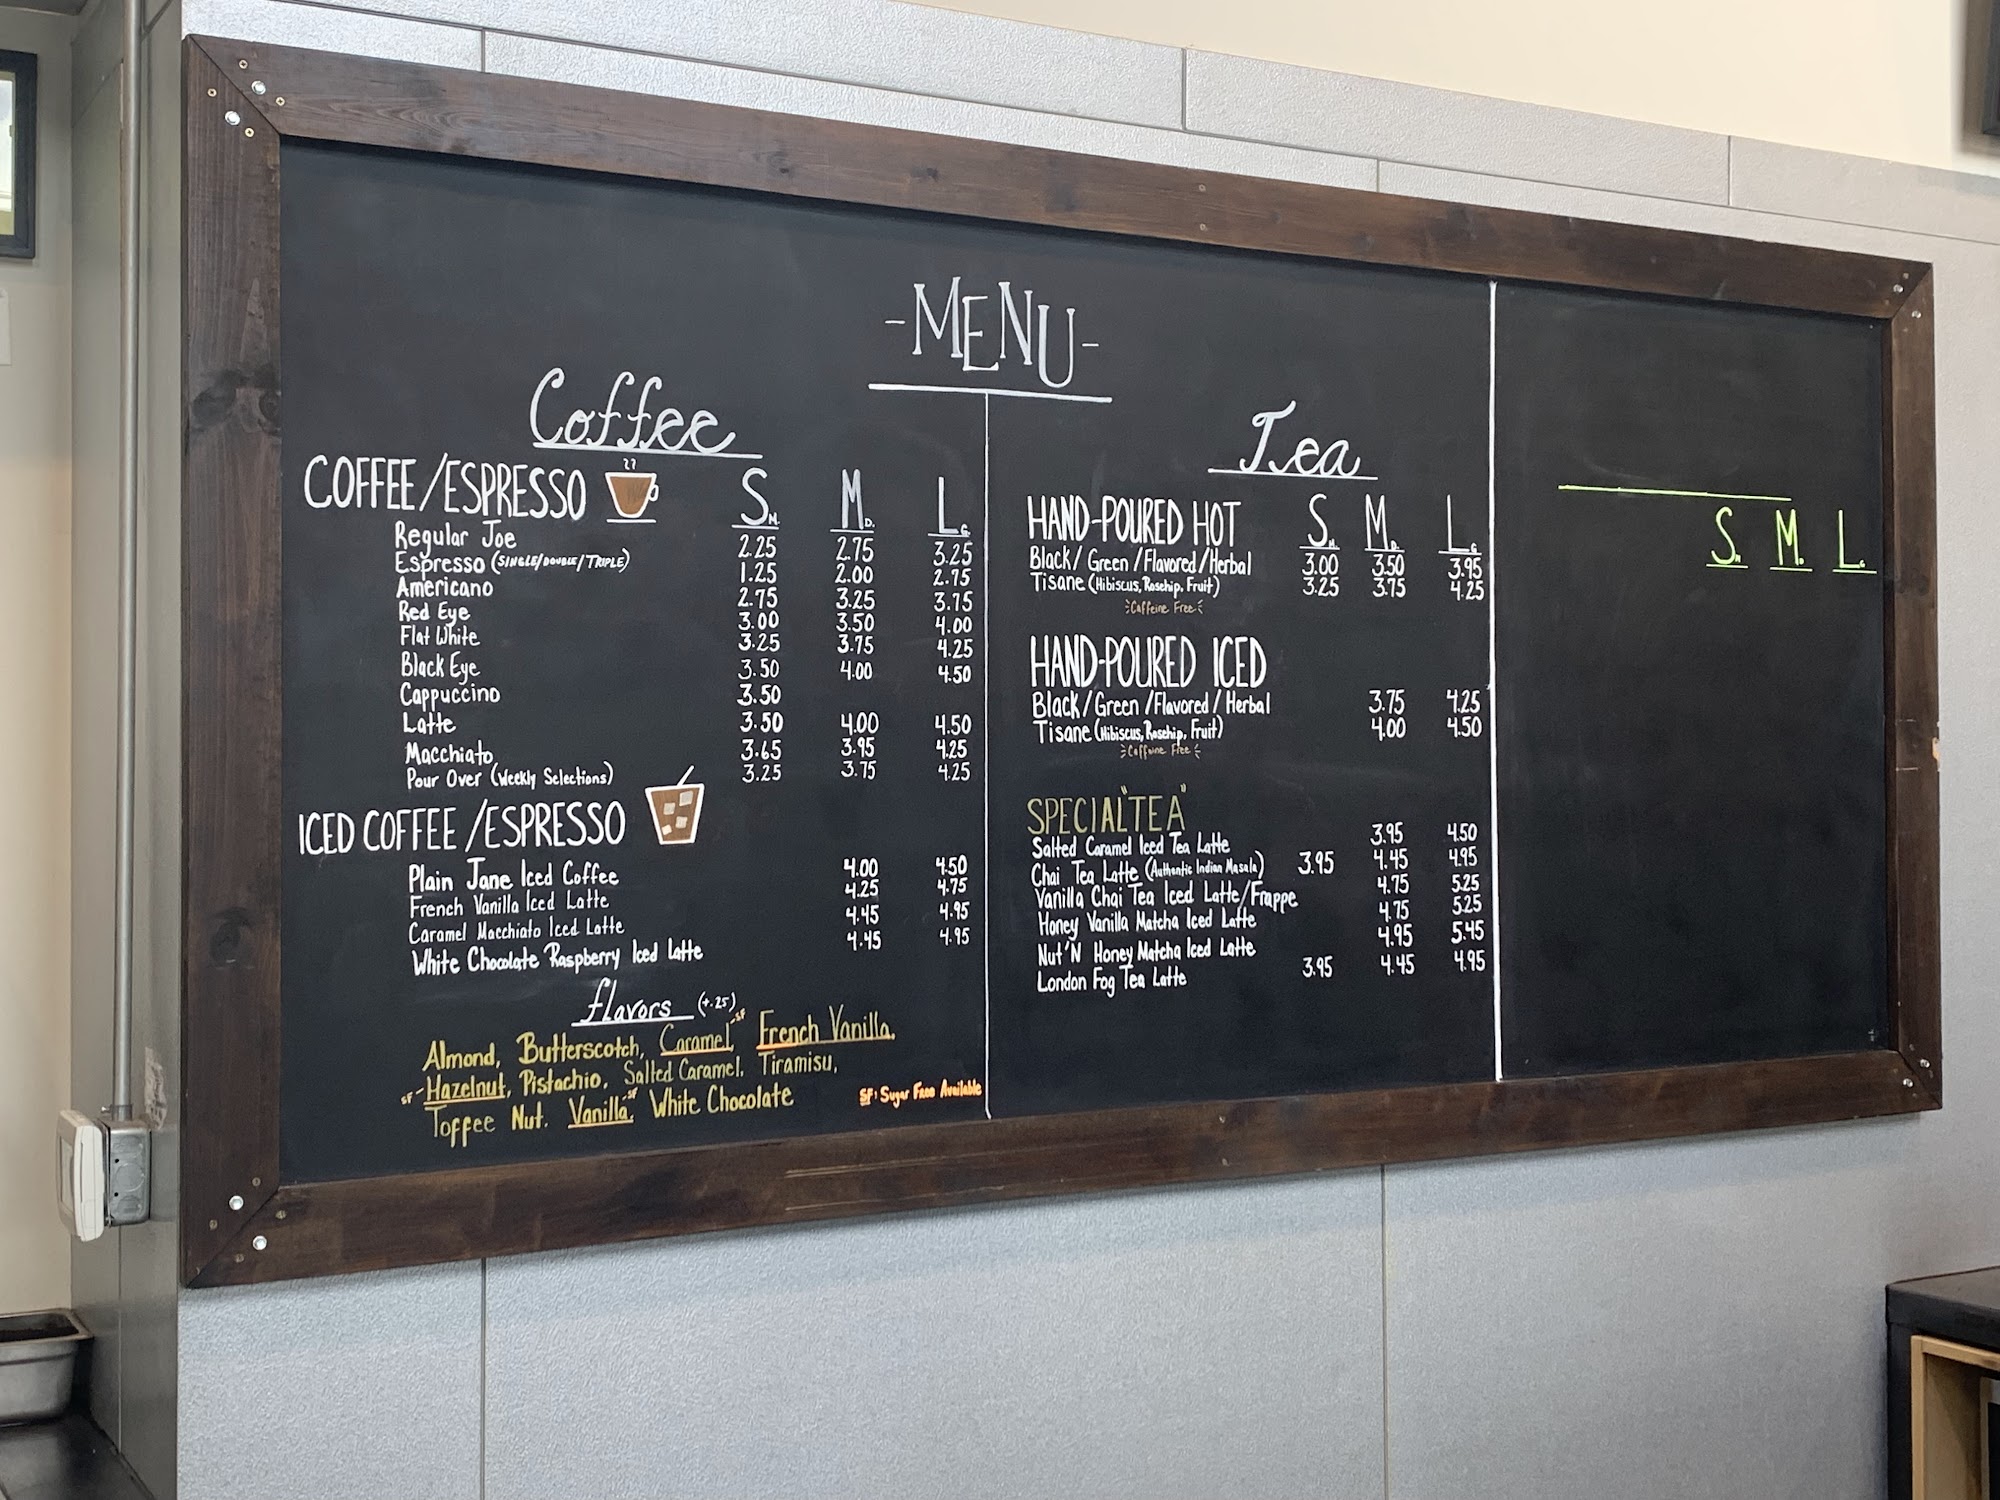 -MENU-
Coffee
COFFEE/ESPRESSO SM. MD. LG.
Regular Joe 2.25 2.75 3.25
Espresso (SINGLE/DOUBLE/TRIPLE) 1.25 2.00 2.75
Americano 2.75 3.25 3.75
Red Eye 3.00 3.50 4.00
Flat White 3.25 3.75 4.25
Black Eye 3.50 4.00 4.50
Cappuccino 3.50
Latte 3.50 4.00 4.50
Macchiato 3.65 3.95 4.25
Pour Over (Weekly Selections) 3.25 3.75 4.25
ICED COFFEE/ESPRESSO
Plain Jane Iced Coffee 4.00 4.50
French Vanilla Iced Latte 4.25 4.75
Caramel Macchiato Iced Latte 4.45 4.95
White Chocolate Raspberry Iced Latte 4.45 4.95
flavors (+.25)
Almond, Butterscotch, Caramel SF, French Vanilla,
SF Hazelnut, Pistachio, Salted Caramel, Tiramisu,
Toffee Nut, Vanilla SF, White Chocolate
SF: Sugar Free Available
Tea
HAND-POURED HOT SM. MD. LG.
Black/Green/Flavored/Herbal 3.00 3.50 3.95
Tisane (Hibiscus, Rosehip, Fruit) 3.25 3.75 4.25
Caffeine Free
HAND-POURED ICED
Black/Green/Flavored/Herbal 3.75 4.25
Tisane (Hibiscus, Rosehip, Fruit) 4.00 4.50
Caffeine Free
SPECIAL"TEA"
Salted Caramel Iced Tea Latte 3.95 4.50
Chai Tea Latte (Authentic Indian Masala) 3.95 4.45 4.95
Vanilla Chai Tea Iced Latte/Frappe 4.75 5.25
Honey Vanilla Matcha Iced Latte 4.75 5.25
Nut'N Honey Matcha Iced Latte 4.95 5.45
London Fog Tea Latte 3.95 4.45 4.95
SM. MD. LG.